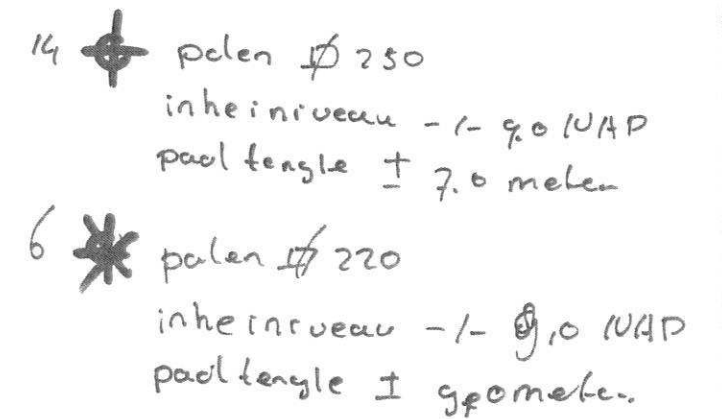 14 palen ⌀ 250
inheiniveau -/- 9.0 NAP
paal lengte ± 7.0 meter
6 palen ⌀ 220
inheiniveau -/- 9,0 NAP
paal lengte ± meter.